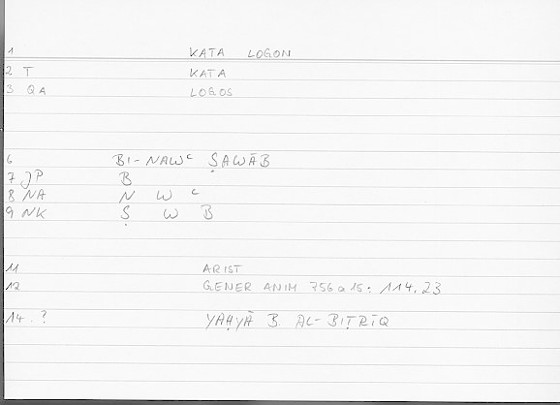 1 KATA LOGON
2 T KATA
3 QA LOGOS
6 BI-NAWᶜ ṢAWĀB
7 JP B
8 NA N W ᶜ
9 NK Ṣ W B
11 ARIST
12 GENER ANIM 756a15: 114.23
14.? YAḤYĀ B. AL-BIṬRĪQ